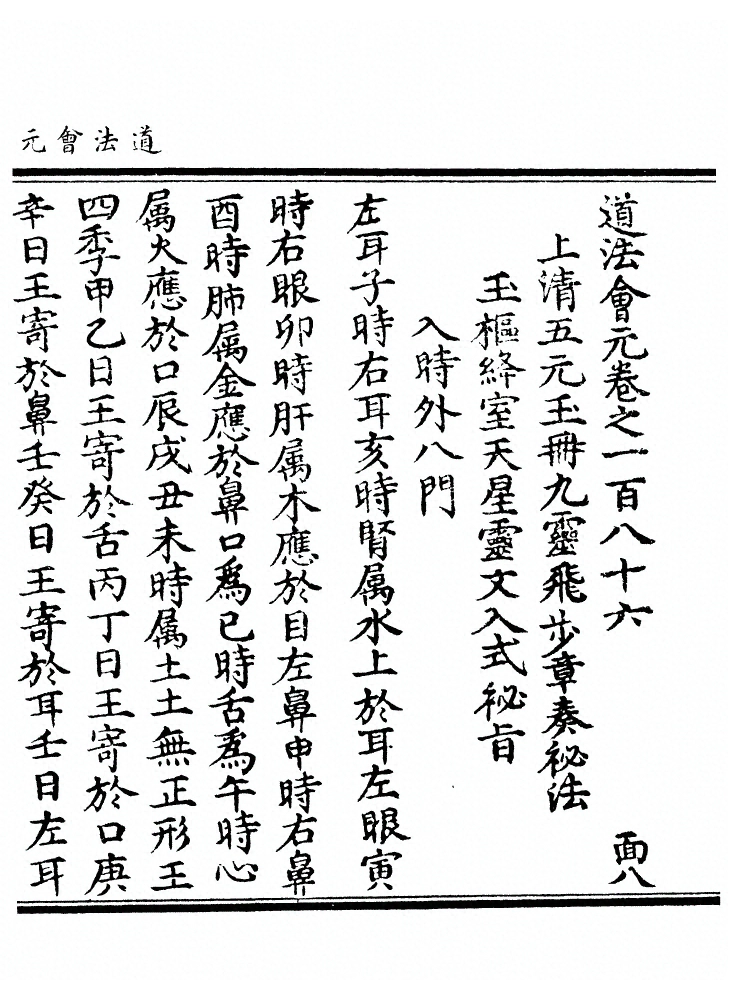 道法會元
道法會元卷之一百八十六　面八
上清五元玉冊九靈飛步章奏祕法
玉樞絳室天星靈文入式祕旨
入時外八門
左耳子時右耳亥時腎属水上於耳左眼寅
時右眼卯時肝属木應於目左鼻申時右鼻
酉時肺属金應於鼻口爲巳時舌爲午時心
属火應於口辰戌丑未時属土土無正形王
四季甲乙日王寄於舌丙丁日王寄於口庚
辛日王寄於鼻壬癸日王寄於耳壬日左耳